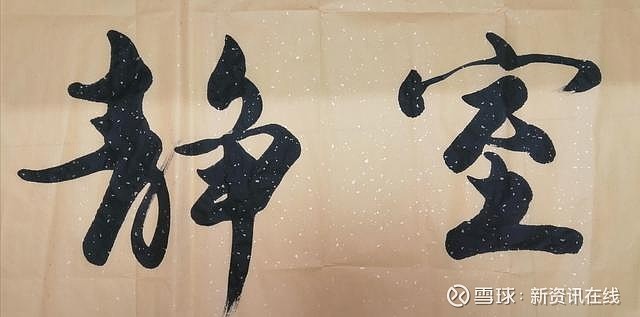 静室
雪球：新资讯在线